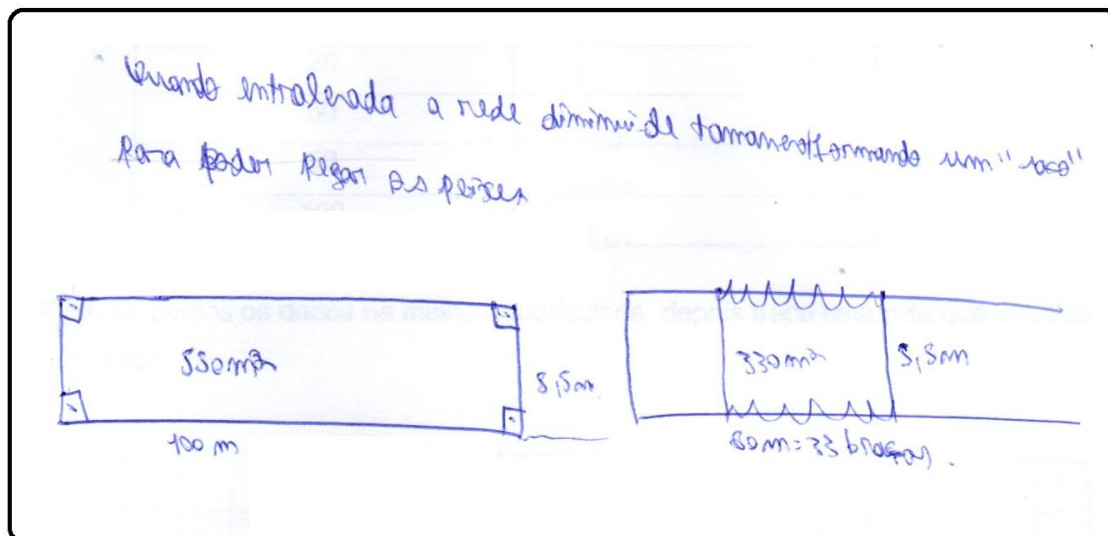 Quando entralerada a rede diminui de tamanero formando um "saco"
Para poder pegar os peixes
550m²
5,5m
100 m
330m²
5,5m
60m = 33 braças.